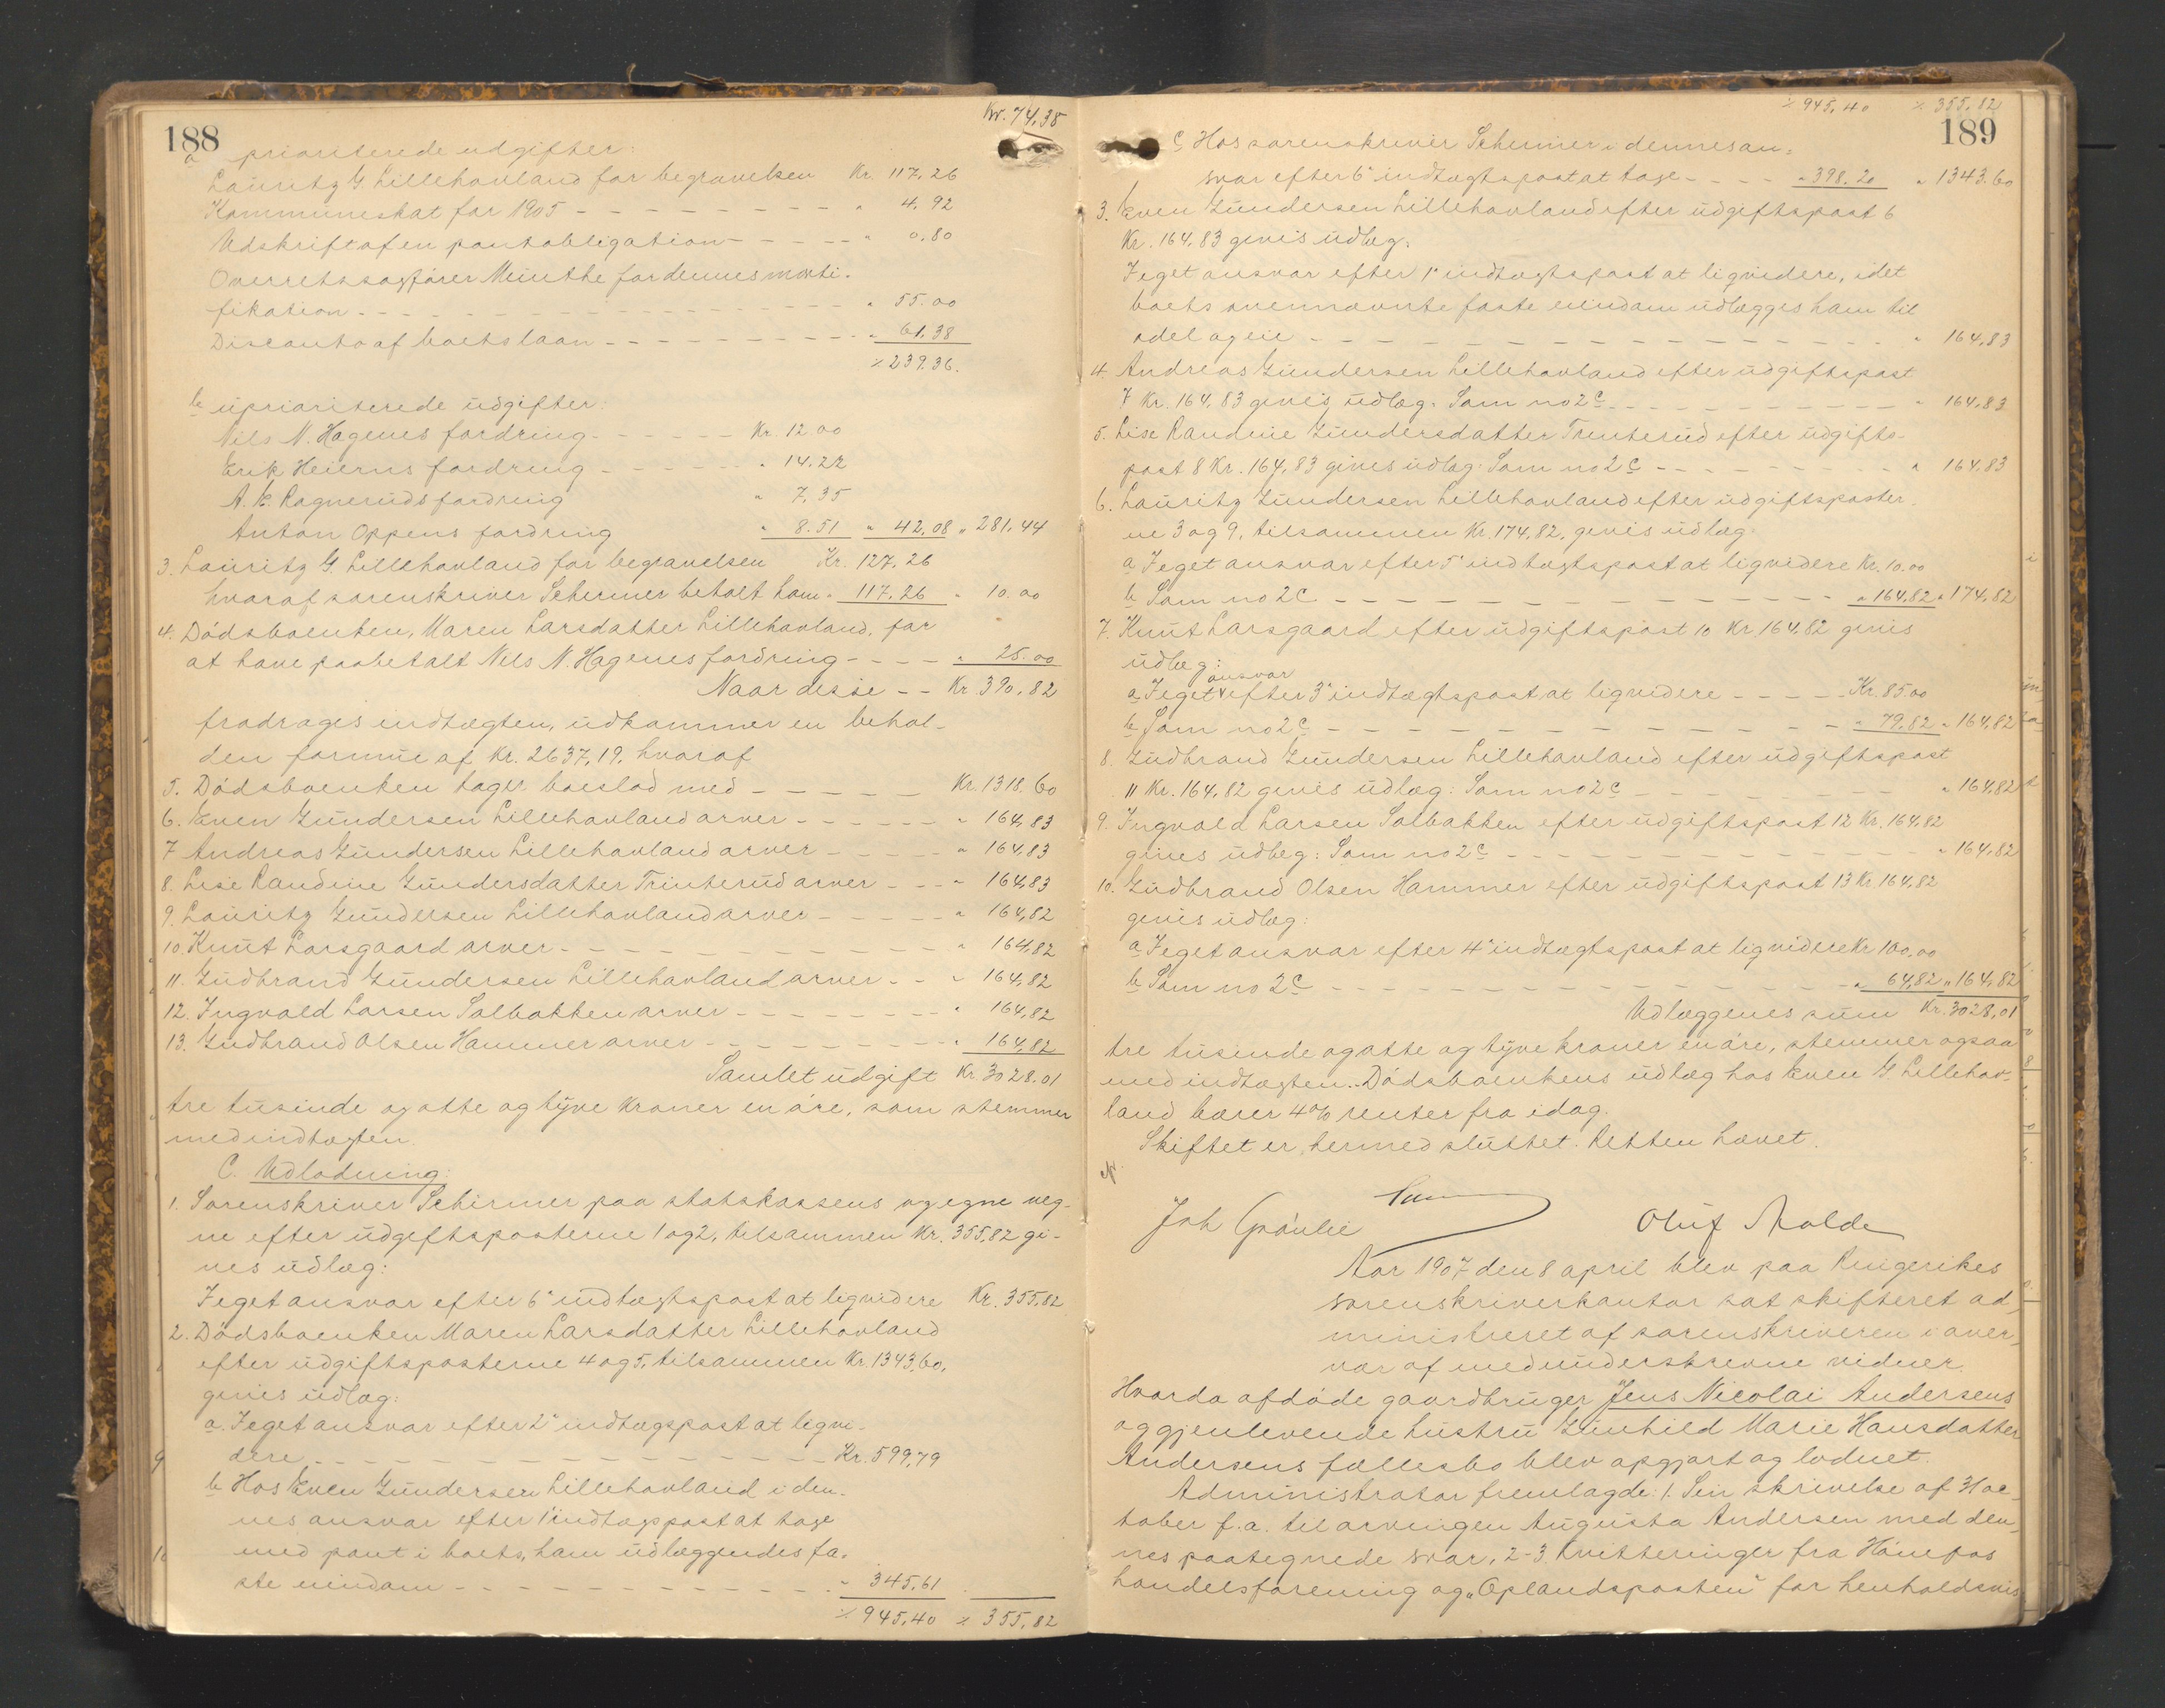 188
Kr. 74,38
a prioriterede udgifter:
Lauritz G Lillehovland for begravelsen Kr. 117,26
Kommuneskat for 1905 - - - - „ 4,92
Udskrift af en pantobligation - - - - „ 0,80
Overretssagfører Meinthe for dennes morti-
fikation - - - - „ 55.00
Disconto af boets laan - - - - „ 61.38
⁒ 239.36.
b upriariterede udgifter:
Nils N. Hagenes fordring - - - - Kr. 12 00
Erik Heierns fordring - - - - „ 14.22
A. K. Ragneruds fordring „ 7,35
Anton Oppens fordring „ 8.51 „ 42,08 „ 281,44
3. Lauritz G. Lillehovland for begravelsen Kr. 127,26
hvoraf sorenskriver Schirmer betalt ham „ 117.26 „ 10.00
4. Dødsboenken, Maren Larsdatter Lillehovland, for
at have paabetalt Nils N. Hagenes fordring - - - - „ 25.00
Naar disse - - Kr. 390,82
fradrages indtægten, udkommer en behol-
den formue af Kr. 2637,19, hvoraf
5. Dødsboenken tager boeslod med - - - - Kr. 1318.60
6. Even Gundersen Lillehovland arver - - - - „ 164,83
7 Andreas Gundersen Lillehovland arver - - - - „ 164,83
8. Lise Randine Gundersdatter Trinterud arver - - - „ 164,83
9. Lauritz Gundersen Lillehovland arver - - - - „ 164,82
10 Knut Larsgaard arver - - - - „ 164,82
11. Gudbrand Gundersen Lillehovland arver - - „ 164,82
12. Ingvald Larsen Solbakken arver - - - - „ 164,82
13. Gudbrand Olsen Hammer arver - - - - „ 164,82
Samlet udgift Kr. 3028.01
tre tusinde og otte og tyve kroner en øre, som stemmer
med indtægten.
C. Udlodning:
1. Sorenskriver Schirmer paa statskassens og egne veg-
ne efter udgiftsposterne 1 og 2, tilsammen Kr. 355,82 gi-
ves udlæg:
I eget ansvar efter 6' indtægtspost at ligvidere Kr. 355,82
2. Dødsboenken Maren Larsdatter Lillehovland
efter udgiftsposterne 4 og 5, tilsammen Kr. 1343 60,
gives udlæg:
a. I eget ansvar efter 2' indtægspost at ligvi-
dere - - - - Kr. 599,79
b Hos Even Gundersen Lillehovland i den-
nes ansvar efter 1' indtægspost at tage
med pant i boets, ham udlæggendes fa-
ste eiendom - - - - „ 345,61
⁒ 945,40 ⁒ 355,82
189
⁒ 945,40 ⁒ 355,82
c Hos sorenskriver Schirmer i dennes an-
svar efter 6' indtægtspost at tage - - - - „ 398.20 „ 1343.60
3. Even Gundersen Lillehovland efter udgiftspost 6
Kr. 164,83 gives udlæg:
I eget ansvar efter 1' indtægtspost at ligvidere, idet
boets ovennævnte faste eiendom udlægges ham til
odel og eie - - - - „ 164,83
4. Andreas Gundersen Lillehovland efter udgiftspost
7 Kr. 164,83 gives udlæg. Som no 2 c - - - - „ 164,83
5. Lise Randine Gundersdatter Trinterud efter udgifts-
post 8 Kr. 164,83 gives udlæg: Som no 2 c - - - - „ 164,83
6. Lauritz Gundersen Lillehovland efter udgiftsposter-
ne 3 og 9, tilsammen Kr. 174,82, gives udlæg:
a I eget ansvar efter 5' indtægtspost at ligvidere Kr. 10.00
b Som no 2 C - - - - „ 164,82 „ 174,82
7. Knut Larsgaard efter udgiftspost 10 Kr. 164,82 gives
udlæg:
ansvar
a I eget efter 3' indtægtspost at ligvidere - - - - Kr. 85.00
b Som no 2 c - - - - „ 79,82 „ 164,82
8. Gudbrand Gundersen Lillehovland efter udgiftspost
11 Kr. 164,82 gives udlæg: Som no 2 c - - - - „ 164,82
9. Ingvald Larsen Solbakken efter udgiftspost 12 Kr. 164,82
gives udlæg: Som no 2 c - - - - „ 164,82
10. Gudbrand Olsen Hammer efter udgiftspost 13 Kr 164,82
gives udlæg:
a I eget ansvar efter 4' indtægtspost at ligvidere Kr 100,00
b Som no 2 c - - - - „ 64,82 „ 164,82
Udlæggenes sum Kr. 3028,01
tre tusinde og otte og tyve kroner en øre, stemmer ogsaa
med indtægten. Dødsboenkens udlæg hos Even G Lillehov-
land bærer 4% renter fra idag.
Skiftet er hermed sluttet. Retten hævet.
Joh Grønlie Oluf Molde
Aar 1907 den 8 april blev paa Ringerikes
sorenskriverkontor sat skifteret ad-
ministreret af sorenskriveren i over-
vær af medunderskrevne vidner.
Hvorda afdøde gaardbruger Jens Nicolai Andersens
og gjenlevende hustru Gunhild Marie Hansdatter
Andersens fællesbo blev opgjort og lodnet.
Administrator fremlagde: 1. Sin skrivelse af 3 oc-
tober f.a. til arvingen Augusta Andersen med den-
nes paategnede svar, 2-3 kvitteringer fra Hønefos
handelsforening og „Oplandsposten" for henholdsvis